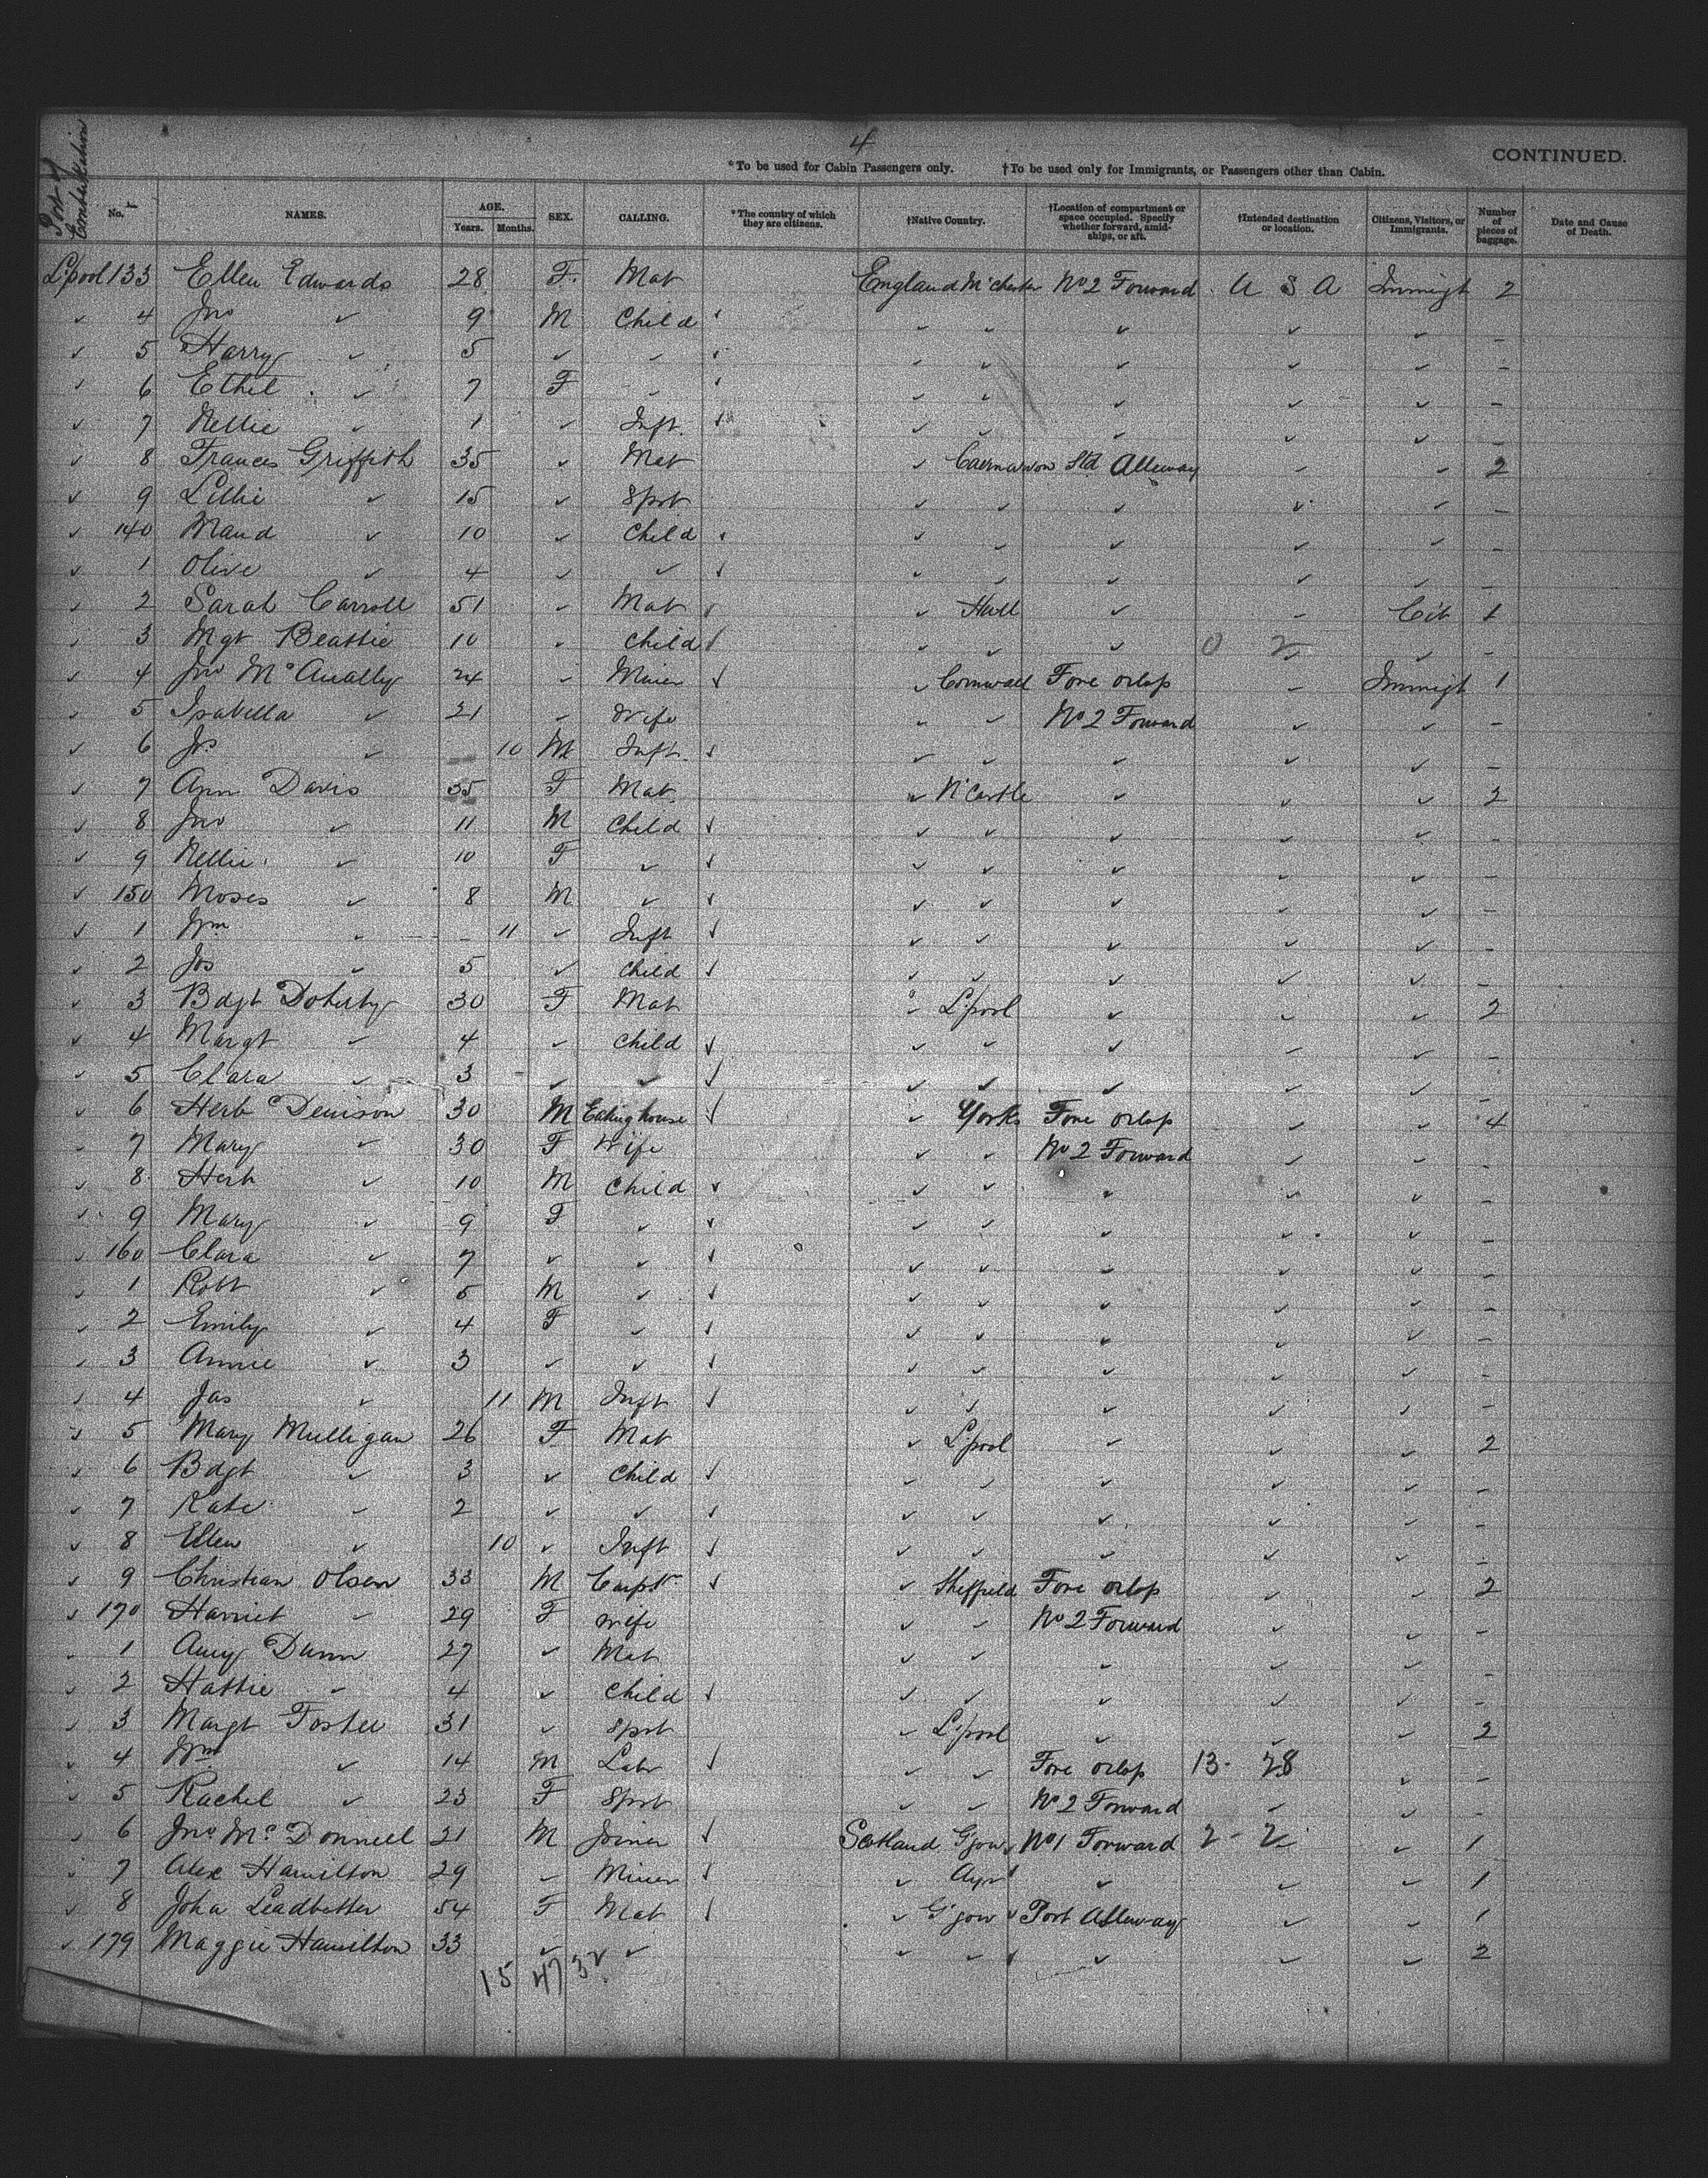 4
CONTINUED.
*To be used for Cabin Passengers only. †To be used only for Immigrants, or Passengers other than Cabin.
Port of Embarkation No. NAMES. AGE. Years. Months. SEX. CALLING. *The country of which they are citizens. †Native Country. †Location of compartment or space occupied. Specify whether forward, amid-ships, or aft. †Intended destination or location. Citizens, Visitors, or Immigrants. Number of pieces of baggage. Date and Cause of Death.
L'pool 133 Ellen Edwards 28 F. Mat England M'chester No 2 Forward U S A Immigt 2
✓ 4 Jno ✓ 9 M Child ✓ ✓ ✓ ✓ ✓ -
✓ 5 Harry ✓ 5 ✓ ✓ ✓ ✓ ✓ ✓ ✓ -
✓ 6 Ethel ✓ 7 F ✓ ✓ ✓ ✓ ✓ ✓ -
✓ 7 Nellie ✓ 1 ✓ Inft. ✓ ✓ ✓ ✓ ✓ ✓ -
✓ 8 Frances Griffith 35 ✓ Mat ✓ Caernarvon Std Alleway ✓ ✓ 2
✓ 9 Lillie ✓ 15 ✓ Spst ✓ ✓ ✓ ✓ ✓ -
✓ 140 Maud ✓ 10 ✓ Child ✓ ✓ ✓ ✓ ✓ -
✓ 1 Olive ✓ 4 ✓ ✓ ✓ ✓ ✓ ✓ ✓ ✓ -
✓ 2 Sarah Carroll 51 ✓ Mat ✓ ✓ Hull ✓ ✓ Cit 1
✓ 3 Mgt Beattie 10 ✓ Child ✓ ✓ ✓ ✓ 0 2 ✓ -
✓ 4 Jno McAnally 24 ✓ Miner ✓ ✓ Cornwall Fore orlop ✓ Immigt 1
✓ 5 Isabella ✓ 21 ✓ Wife ✓ ✓ No 2 Forward ✓ ✓ -
✓ 6 Js ✓ 10 M Inft. ✓ ✓ ✓ ✓ ✓ ✓ -
✓ 7 Ann Davis 35 F Mat. ✓ N'Castle ✓ ✓ ✓ 2
✓ 8 Jno ✓ 11 M Child ✓ ✓ ✓ ✓ ✓ ✓ -
✓ 9 Nellie ✓ 10 F ✓ ✓ ✓ ✓ ✓ ✓ ✓ -
✓ 150 Moses ✓ 8 M ✓ ✓ ✓ ✓ ✓ ✓ ✓ -
✓ 1 Wm ✓ - 11 ✓ Inft ✓ ✓ ✓ ✓ ✓ ✓ -
✓ 2 Jos ✓ 5 ✓ Child ✓ ✓ ✓ ✓ ✓ ✓ -
✓ 3 Bdgt Doherty 30 F Mat ✓ L'pool ✓ ✓ ✓ 2
✓ 4 Margt ✓ 4 ✓ Child ✓ ✓ ✓ ✓ ✓ ✓ -
✓ 5 Clara ✓ 3 ✓ ✓ ✓ ✓ ✓ ✓ ✓ ✓ -
✓ 6 Herb Denison 30 M Eating house ✓ ✓ Yorks Fore orlop ✓ ✓ 4
✓ 7 Mary ✓ 30 F Wife ✓ ✓ No 2 Forward ✓ ✓ -
✓ 8 Herb ✓ 10 M Child ✓ ✓ ✓ ✓ ✓ ✓ -
✓ 9 Mary ✓ 9 F ✓ ✓ ✓ ✓ ✓ ✓ ✓ -
✓ 160 Clara ✓ 7 ✓ ✓ ✓ ✓ ✓ ✓ ✓ ✓ -
✓ 1 Robt ✓ 5 M ✓ ✓ ✓ ✓ ✓ ✓ ✓ -
✓ 2 Emily ✓ 4 F ✓ ✓ ✓ ✓ ✓ ✓ ✓ -
✓ 3 Annie ✓ 3 ✓ ✓ ✓ ✓ ✓ ✓ ✓ ✓ -
✓ 4 Jas ✓ 11 M Inft ✓ ✓ ✓ ✓ ✓ ✓ -
✓ 5 Mary Mulligan 26 F Mat ✓ L'pool ✓ ✓ ✓ 2
✓ 6 Bdgt ✓ 3 ✓ Child ✓ ✓ ✓ ✓ ✓ ✓ -
✓ 7 Kate ✓ 2 ✓ ✓ ✓ ✓ ✓ ✓ ✓ ✓ -
✓ 8 Ellen ✓ 10 ✓ Inft ✓ ✓ ✓ ✓ ✓ ✓ -
✓ 9 Christian Olsen 33 M Carptr ✓ ✓ Sheffield Fore orlop ✓ ✓ 2
✓ 170 Harriet ✓ 29 F wife ✓ ✓ No 2 Forward ✓ ✓ -
✓ 1 Amy Dunn 27 ✓ Mat ✓ ✓ ✓ ✓ ✓ -
✓ 2 Hattie ✓ 4 ✓ Child ✓ ✓ ✓ ✓ ✓ ✓ -
✓ 3 Margt Foster 31 ✓ Spst ✓ L'pool ✓ ✓ ✓ 2
✓ 4 Wm ✓ 14 M Labr ✓ ✓ ✓ Fore orlop 13- 28 ✓ -
✓ 5 Rachel ✓ 23 F Spst ✓ ✓ No 2 Forward ✓ ✓ -
✓ 6 Jno McDonnell 21 M Joiner ✓ Scotland G'gow No 1 Forward 2 - 2 ✓ 1
✓ 7 Alex Hamilton 29 ✓ Miner ✓ ✓ Ayr ✓ ✓ ✓ 1
✓ 8 Joha Leadbetter 54 F Mat ✓ ✓ G'gow Port Alleway ✓ ✓ 1
✓ 179 Maggie Hamilton 33 ✓ ✓ ✓ ✓ ✓ ✓ ✓ 2
15 47 32